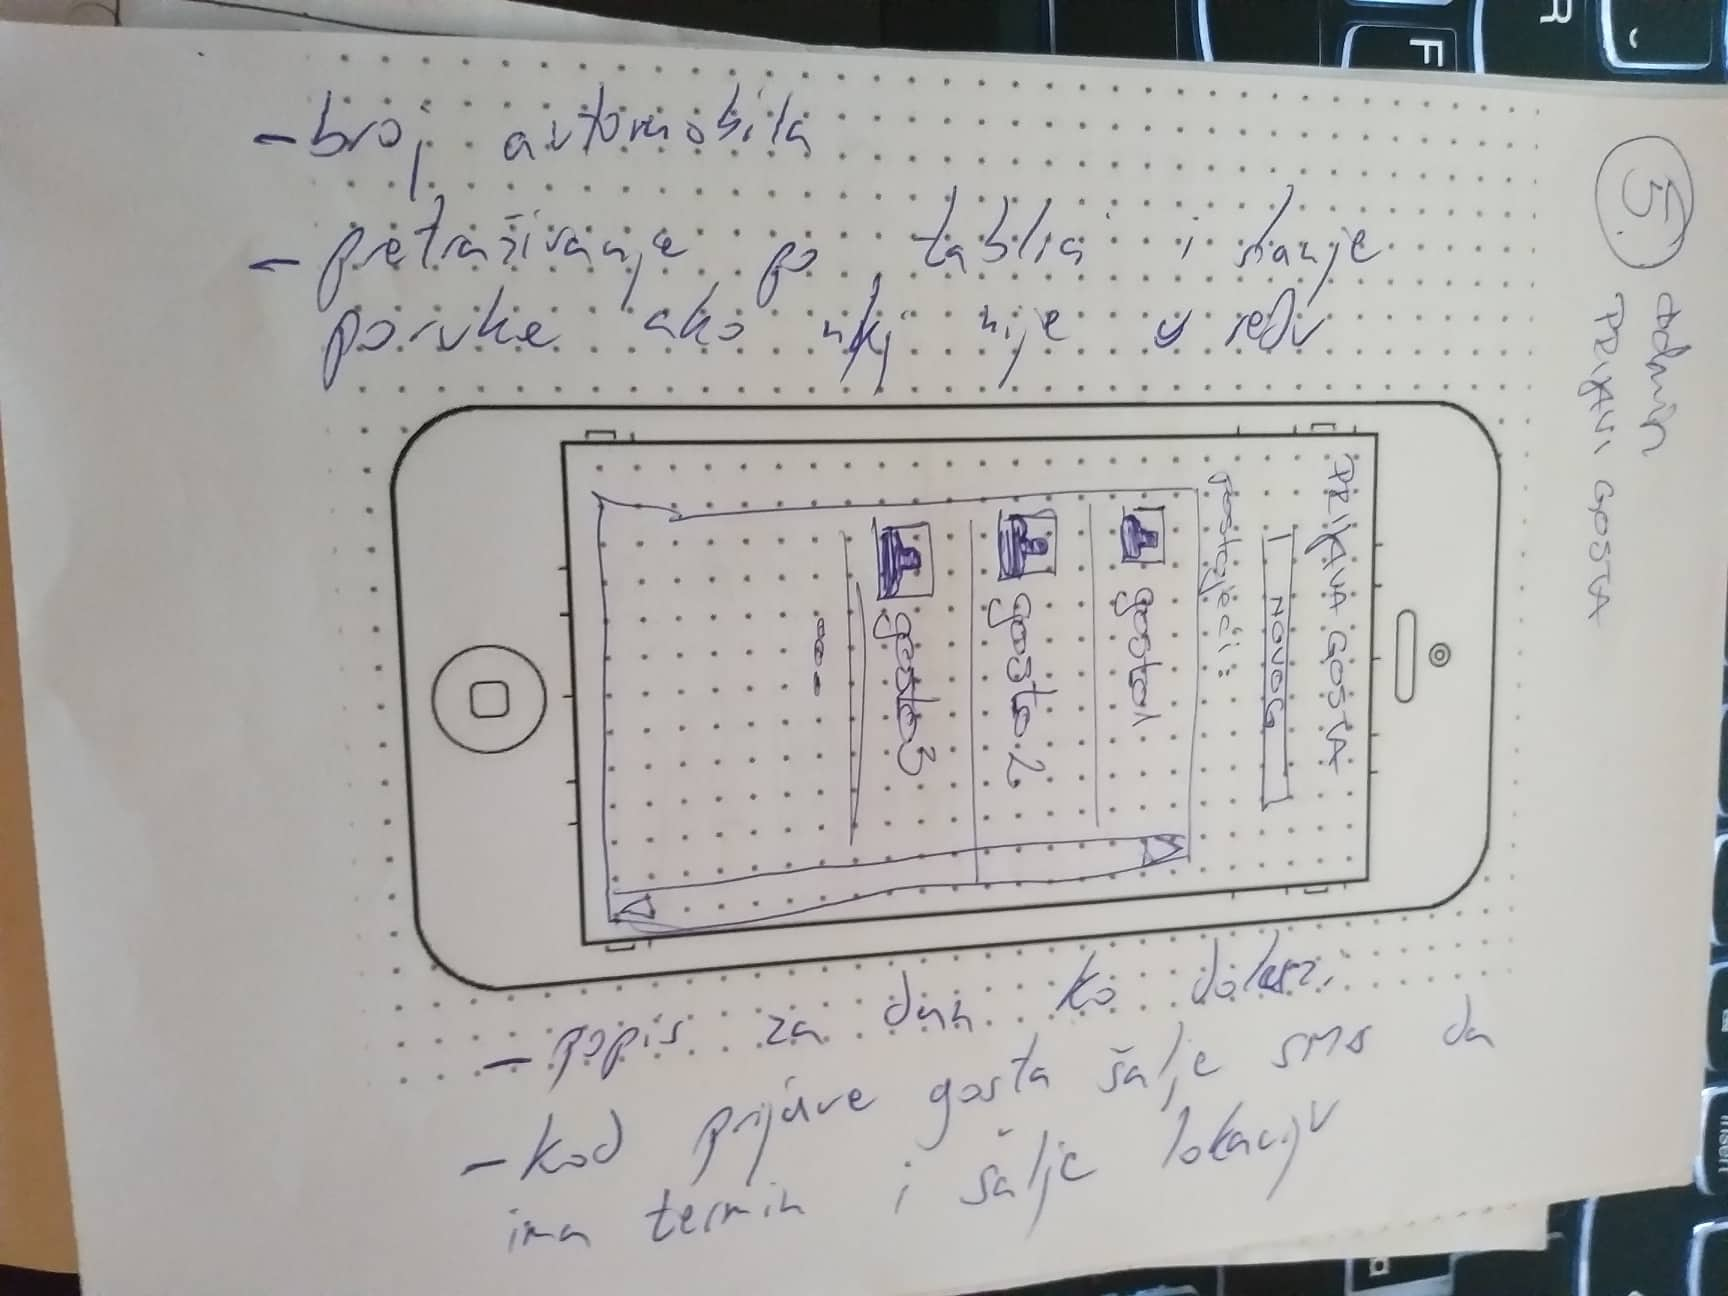 5. admin
PRIJAVI GOSTA
- broj automobila
- pretraživanje po tablici i slanje
poruke ako nije u redu
PRIJAVA GOSTA
NOVOG
postojeći:
gosto1
gosto2
gosto3
...
- popis za dan ko dolazi
- kod prijave gosta šalje SMS da
ima termin i šalje lokaciju
F
R
insert